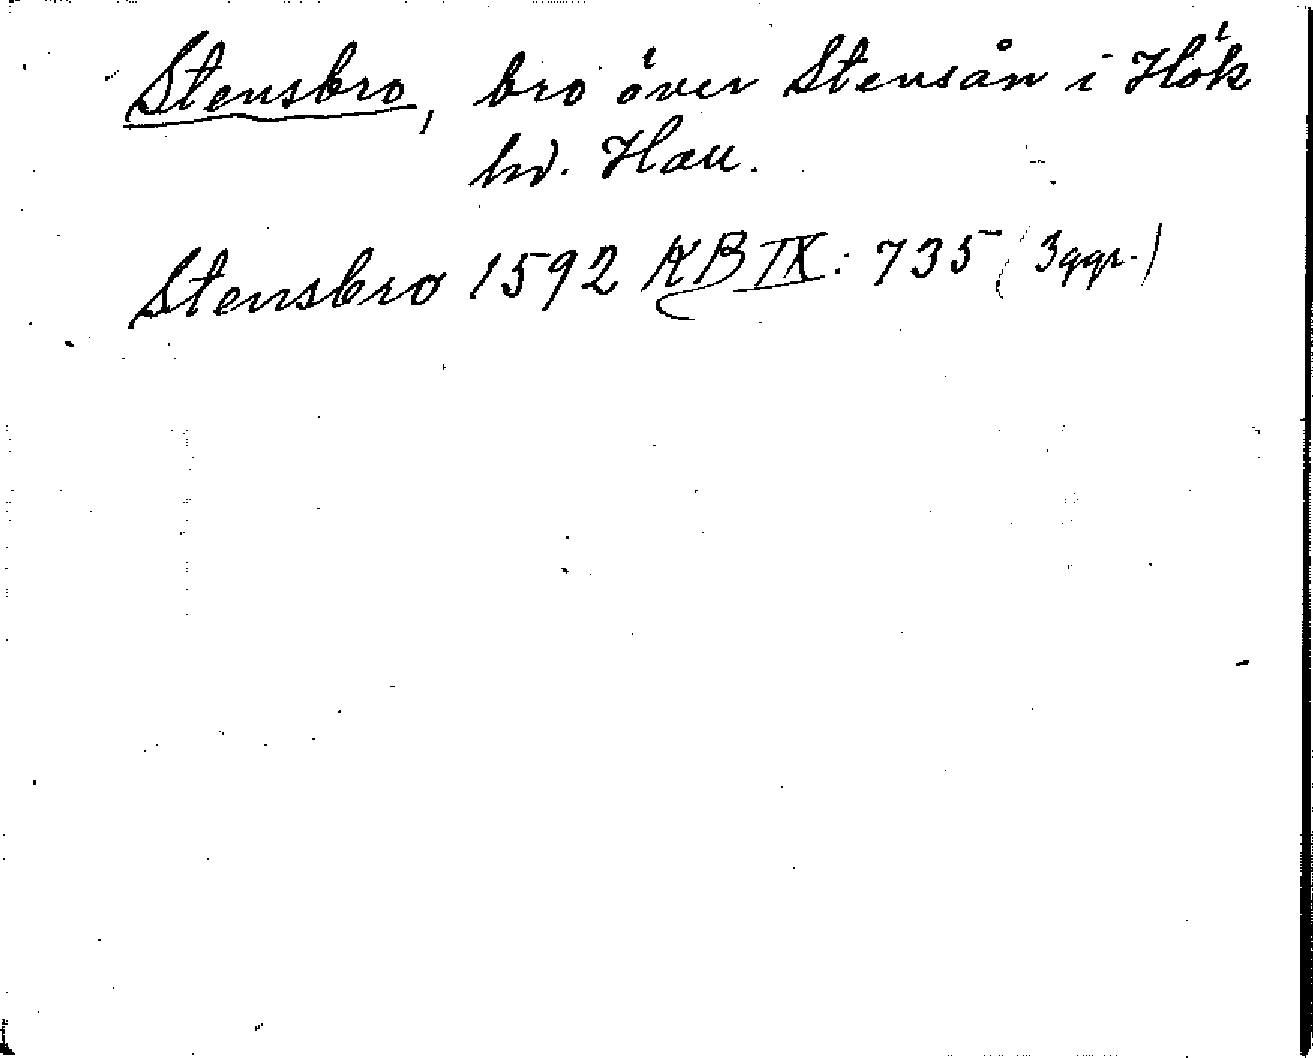 Stensbro, bro över Stensån i Hök
hd. Hall.
Stensbro 1592 KB IX: 735 (3 ggr.)